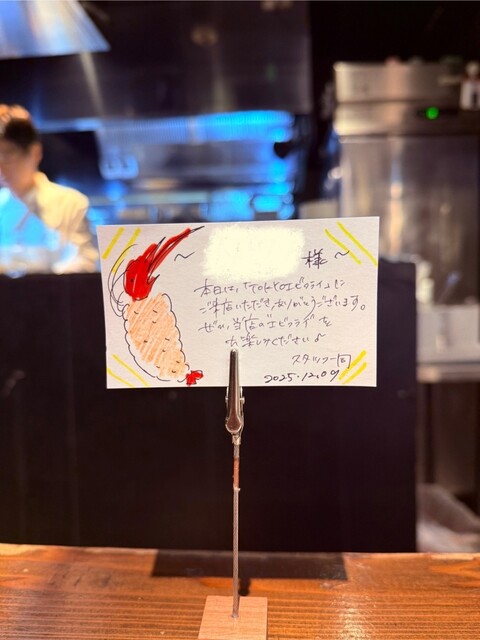 〜 様〜
本日は、「TOKYOエビフライ」に
ご来店いただき、ありがとうございます。
ぜひ、当店の"エビフライ"を
お楽しみください♪
スタッフ一同
2025.12.09